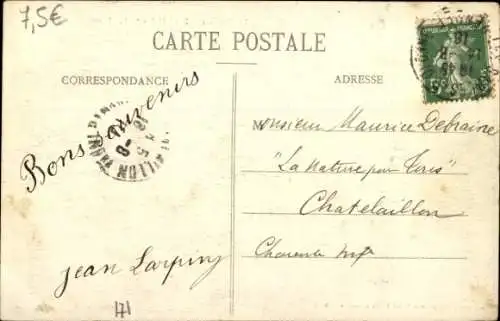 7,5€
CARTE POSTALE
CORRESPONDANCE
ADRESSE
Bons souvenirs
Monsieur Maurice Debraine
"La Nature pour Tous"
Chatelaillon
Charente Infre
Jean Larping
171